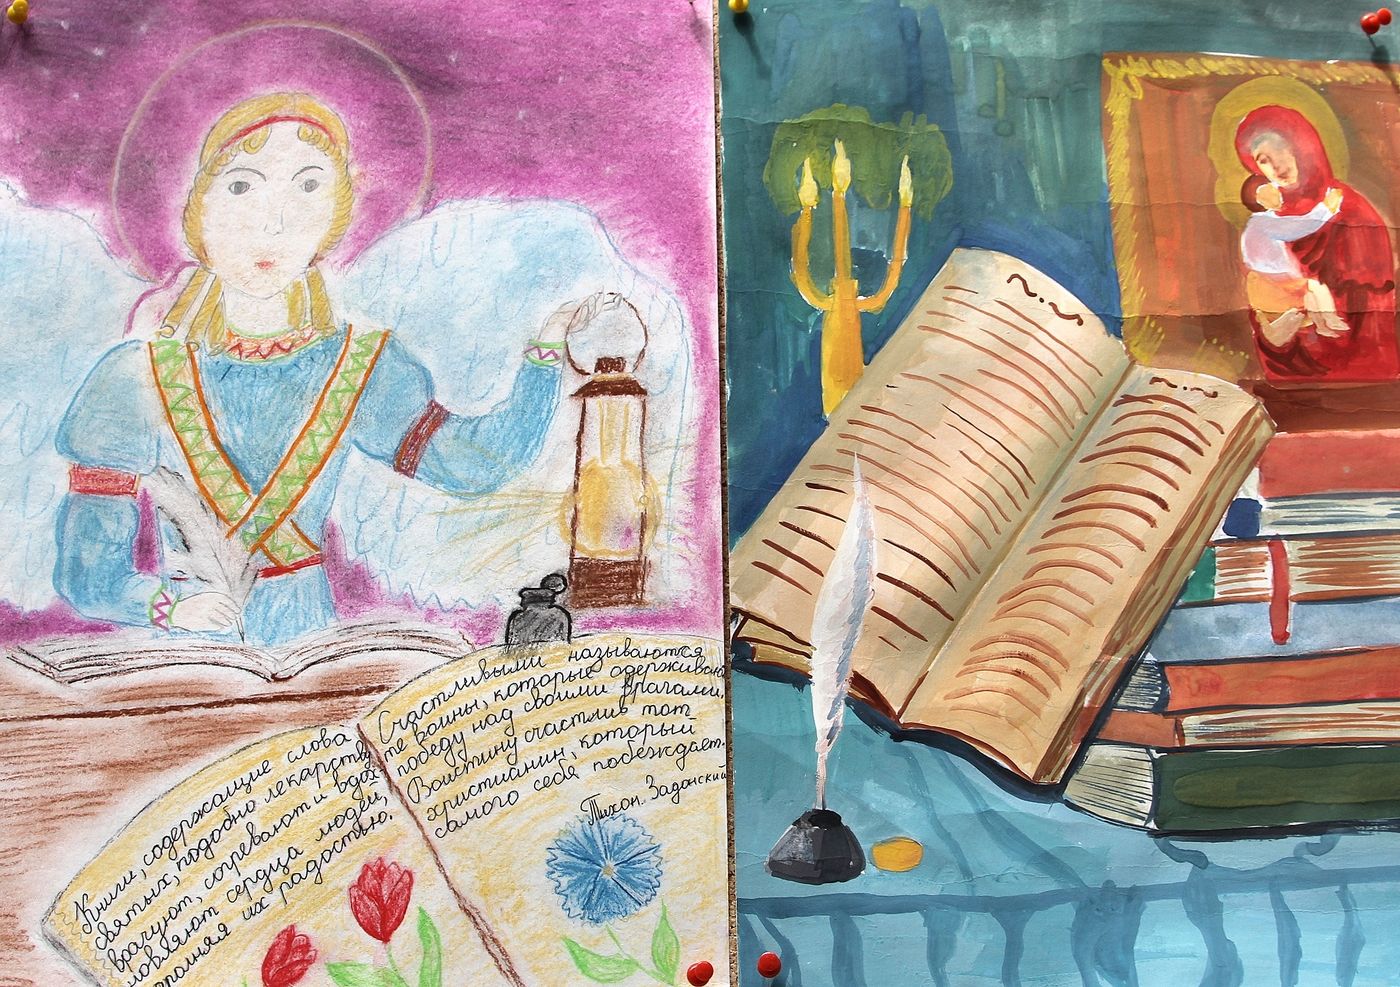 Книги, содержащие слова
святых, подобно лекарству
врачуют, согревают и вдох
новляют сердца людей,
полняя их радостью.
Счастливыми называются
те воины, которые одерживаю
победу над своими врагами.
Воистину счастлив тот
христианин, который
самого себя побеждает.
Тихон Задонский